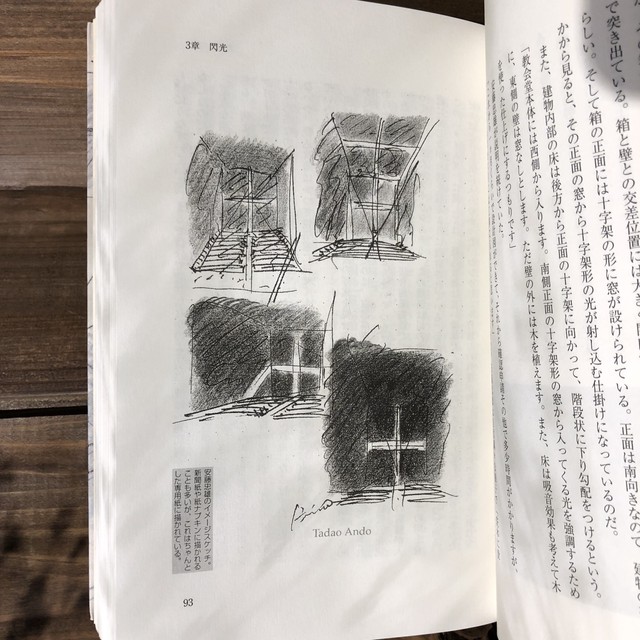 で突き出ている。箱と壁との交差位置には大
らしい。そして箱の正面には十字架の形に窓が設けられている。正面は南向きなので、建
かから見ると、その正面の窓から十字架形の光が射し込む仕掛けになっているのだ。
また、建物内部の床は後方から正面の十字架に向かって、階段状に下り勾配をつけるという。
「教会堂本体には西側から入ります。南側正面の十字架形の窓から入ってくる光を強調するため
に、東側の壁は窓なしとします。ただ壁の外には木を植えます。また、床は吸音効果も考えて木
を使った仕上げにするつもりです」
3章 閃光
Tadao Ando
安藤忠雄のイメージスケッチ。
新聞紙や紙ナプキンに描かれる
ことも多いが、これはちゃんと
した専用紙に描かれている。
93